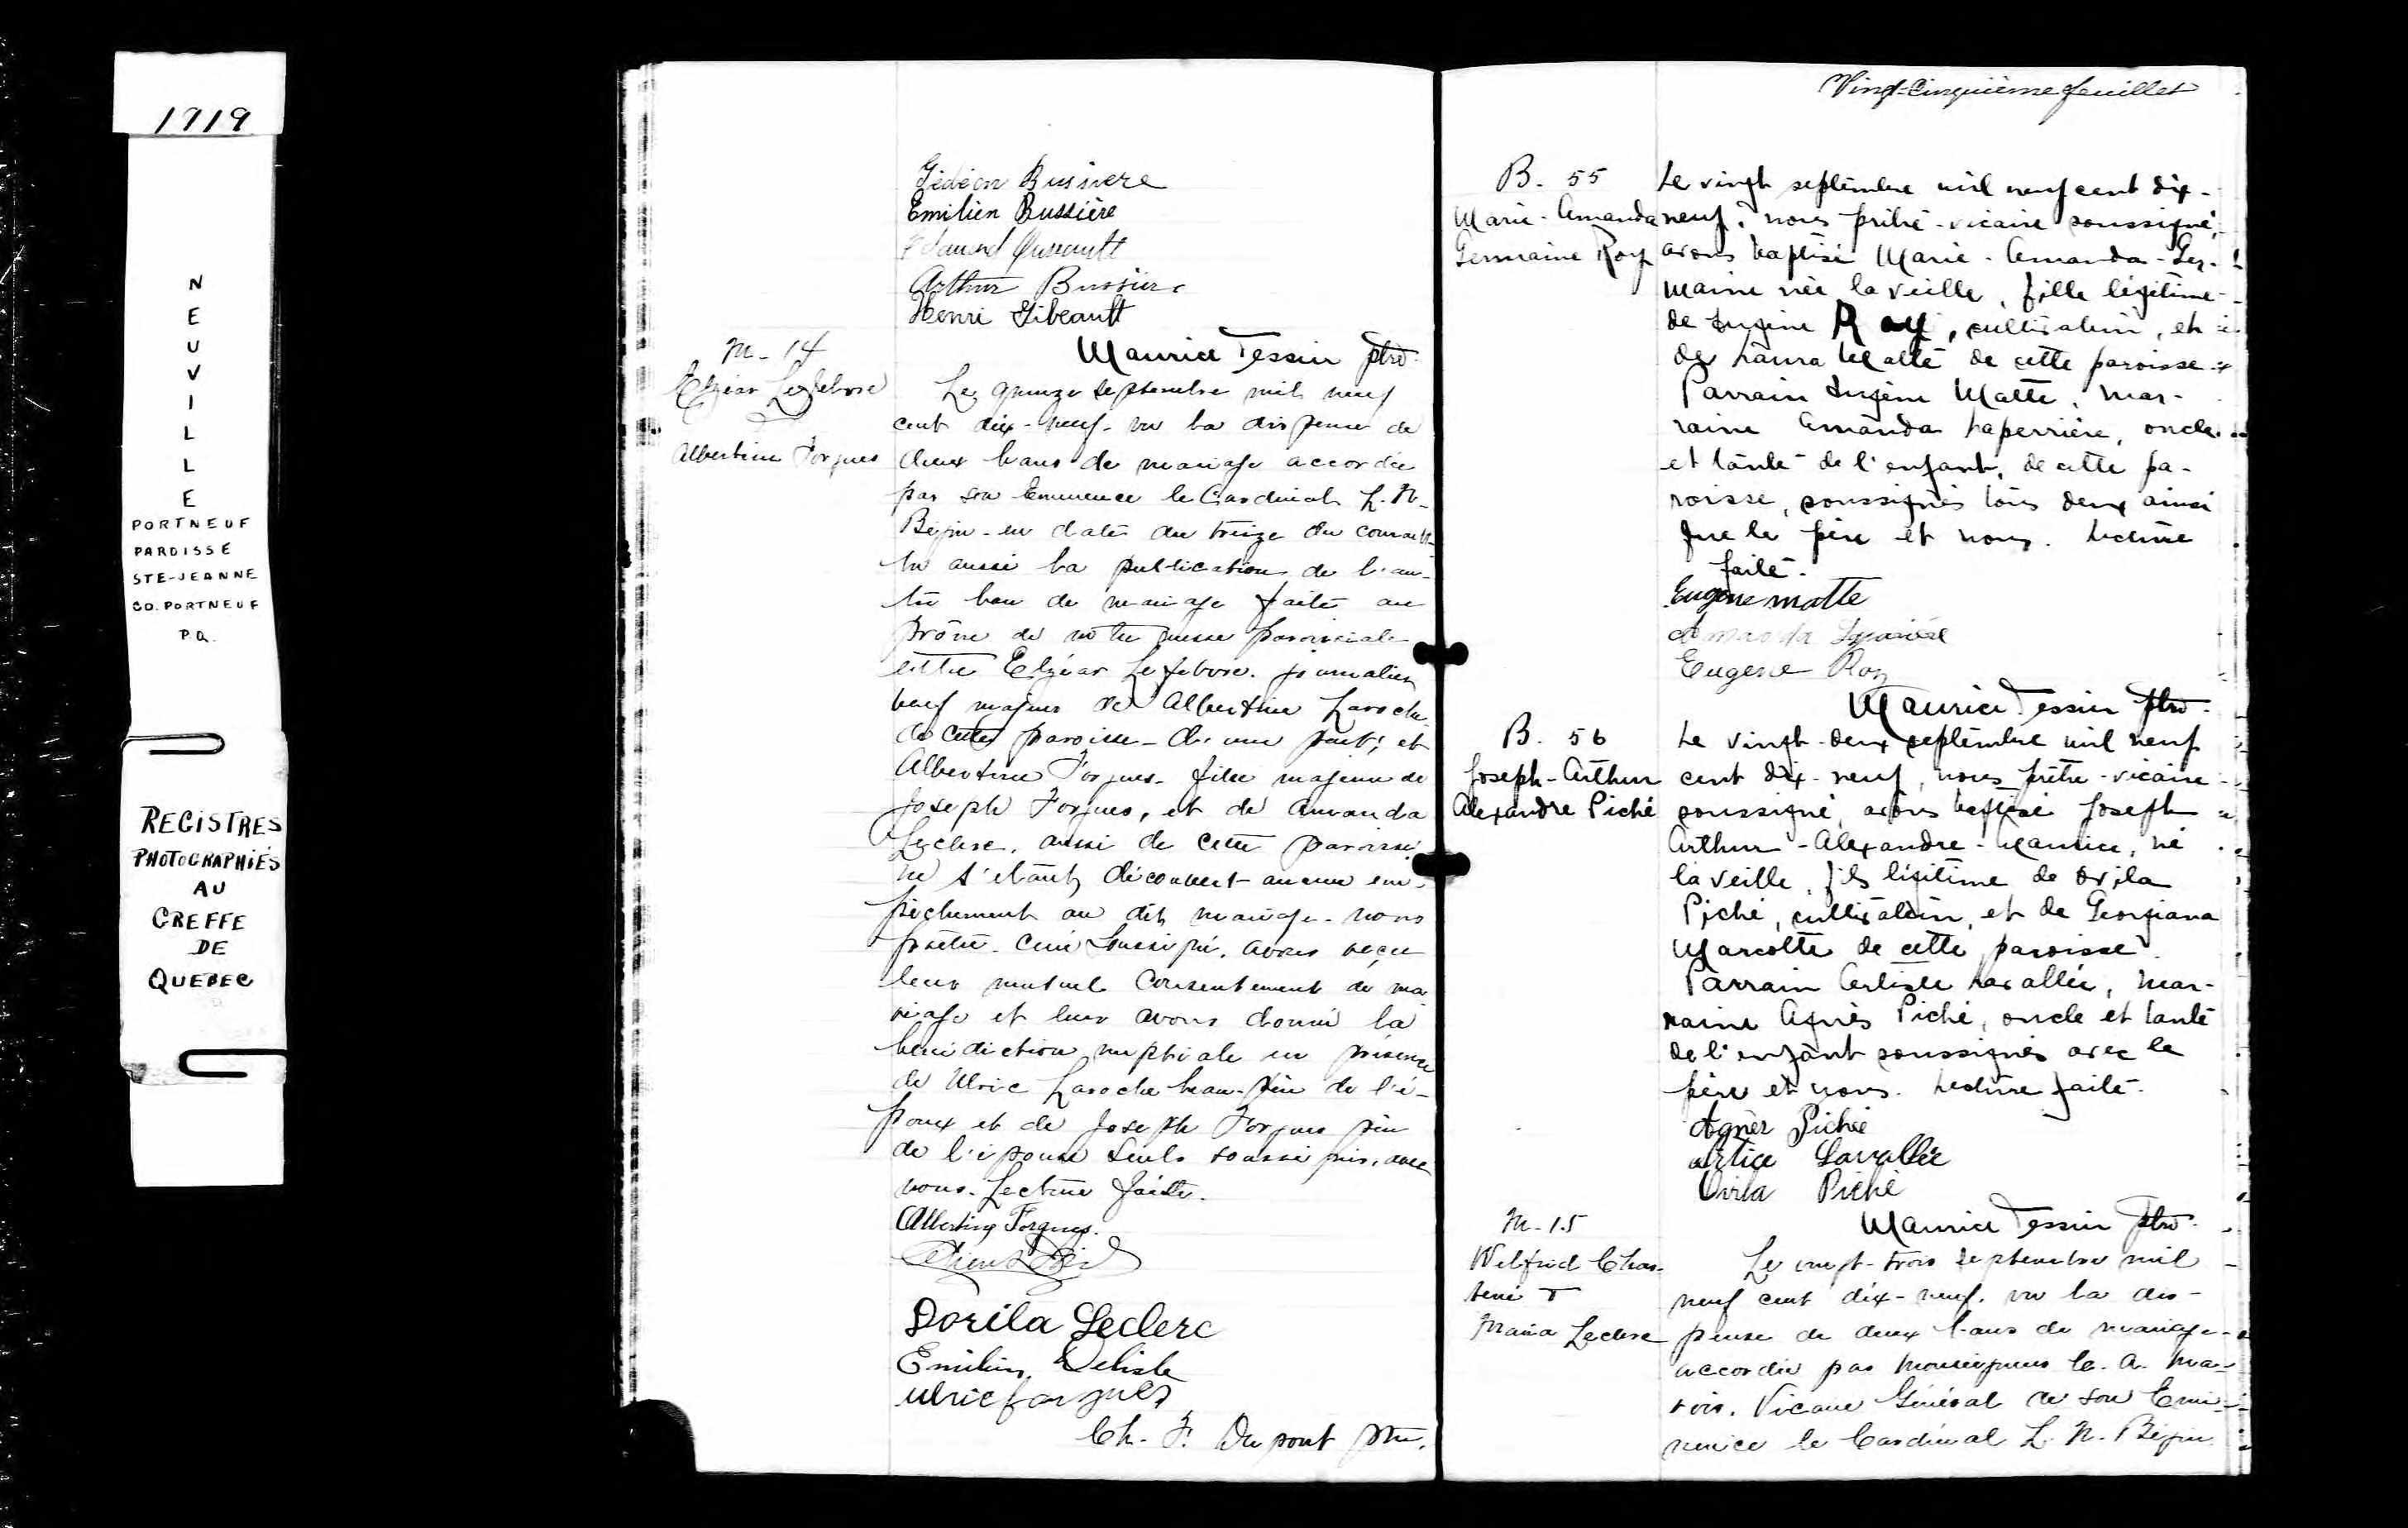 1919
N
E
U
V
I
L
L
E
PORTNEUF
PAROISSE
STE-JEANNE
CO. PORTNEUF
P.Q.
REGISTRES
PHOTOGRAPHIÉS
AU
GREFFE
DE
QUEBEC
Gédéon Bussiere
Emilien Bussière
Arthur Bussière
Henri Gibeault
Maurice Tessier ptre
M - 14
Elzéar Lefebvre
Albertine Forgues
Le quinze septembre mil neuf
cent dix-neuf - vu la dispense de
deux bans de mariage accordée
par son Eminence le Cardinal L. N.
Bégin - en date du treize du courant
vu aussi la publication de l'au-
tre ban de mariage faite au
prône de notre messe paroissiale
entre Elzéar Lefebvre, journalier
veuf majeur de Albertine Laroche
de cette paroisse - d'une part; et
Albertine Forgues - fille majeure de
Joseph Forgues, et de Amanda
Leclerc, aussi de cette paroisse
ne s'étant découvert aucun em-
pêchement au dit mariage - nous
prêtre - curé soussigné, avons reçu
leur mutuel consentement de ma
riage et leur avons donné la
bénédiction nuptiale en présence
de Ulric Laroche beau-père de l'é-
poux et de Joseph Forgues père
de l'épouse seuls soussignés, avec
nous. Lecture faite.
Albertine Forgues.
Dorila Leclerc
Emilien Delisle
Ulric forgues
Ch. F. Dupont ptre.
Vingt-Cinquième feuillet
B. 55
Marie-Amanda
Germaine Roy
Le vingt septembre mil neuf cent dix-
neuf, nous prêtre-vicaire soussigné,
avons baptisé Marie-Amanda-Ger-
maine née la veille, fille légitime
de Eugène Roy, cultivateur, et
de Laura Matte de cette paroisse.
Parrain Eugène Matte, mar-
raine Amanda Laperrière, oncle
et tante de l'enfant, de cette pa-
roisse, soussignés tous deux ainsi
que le père et nous. Lecture
faite.
Eugène matte
Amanda Laperrière
Eugène Roy
Maurice Tessier ptre
B. 56
Joseph-Arthur
Alexandre Piché
Le vingt-deux septembre mil neuf
cent dix-neuf, nous prêtre-vicaire
soussigné, avons baptisé Joseph
Arthur-Alexandre-Maurice, né
la veille, fils légitime de Ovila
Piché, cultivateur, et de Georgiana
Marcotte de cette paroisse.
Parrain Lavallée, mar-
raine Agnès Piché, oncle et tante
de l'enfant soussignés avec le
père et nous. Lecture faite.
Agnès Piché
Lavallée
Ovila Piché
Maurice Tessier ptre
M - 15
Wilfrid Chas-
tené
Maria Leclerc
Le vingt-trois septembre mil
neuf cent dix-neuf, vu la dis-
pense de deux bans de mariage
accordée par Monseigneur C. A. Ma-
rois, Vicaire Général de son Emi-
nence le Cardinal L. N. Bégin